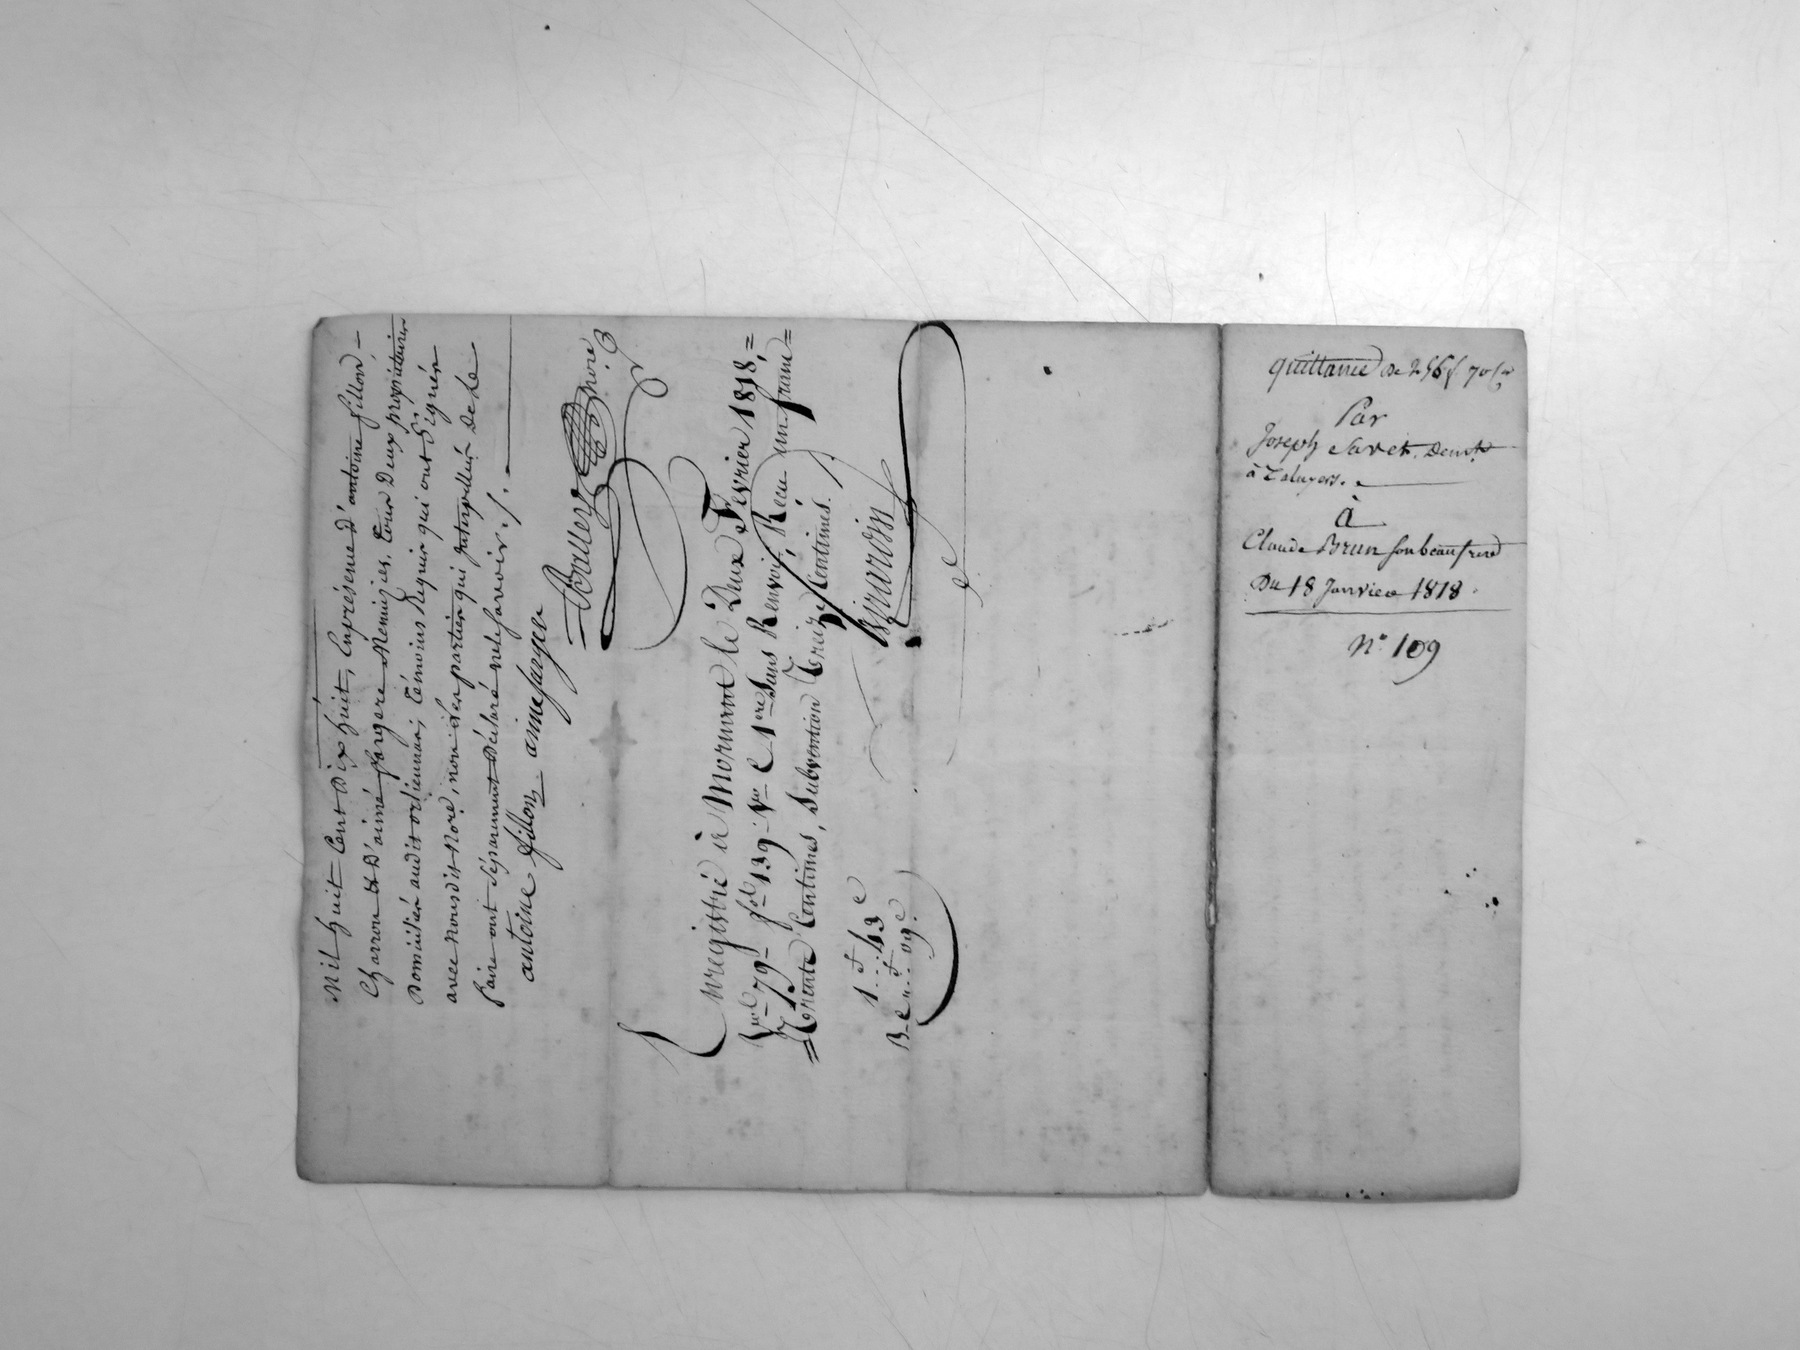 Mil huit Cent Dix huit, En présence D'antoine fillon –
Charron & D'aimé fargere Menuisier, Tous Deux propriétaires
Domiciliés audit orliennas, Témoins Requis qui ont Signés
avec Nous dit Nore, non les parties qui Interpellées De le
faire ont Séparement Déclaré ne le Savoir ./.
antoine fillon aimé fargere
nore
Enregistré à Mornant le Deux Fevrier 1818, =
Vol 79 fol 139 Vo C 1ere Sans Renvoi, Récu un franc =
= Trente Centimes, Subvention Treize Centimes.
1f..43c
Girardin
quittance De 256f 70c
Par
Joseph Savet. Demt
à Taluyers.
à
Claude Brun Son beaufrere
Du 18 Janvier 1818.
No 109